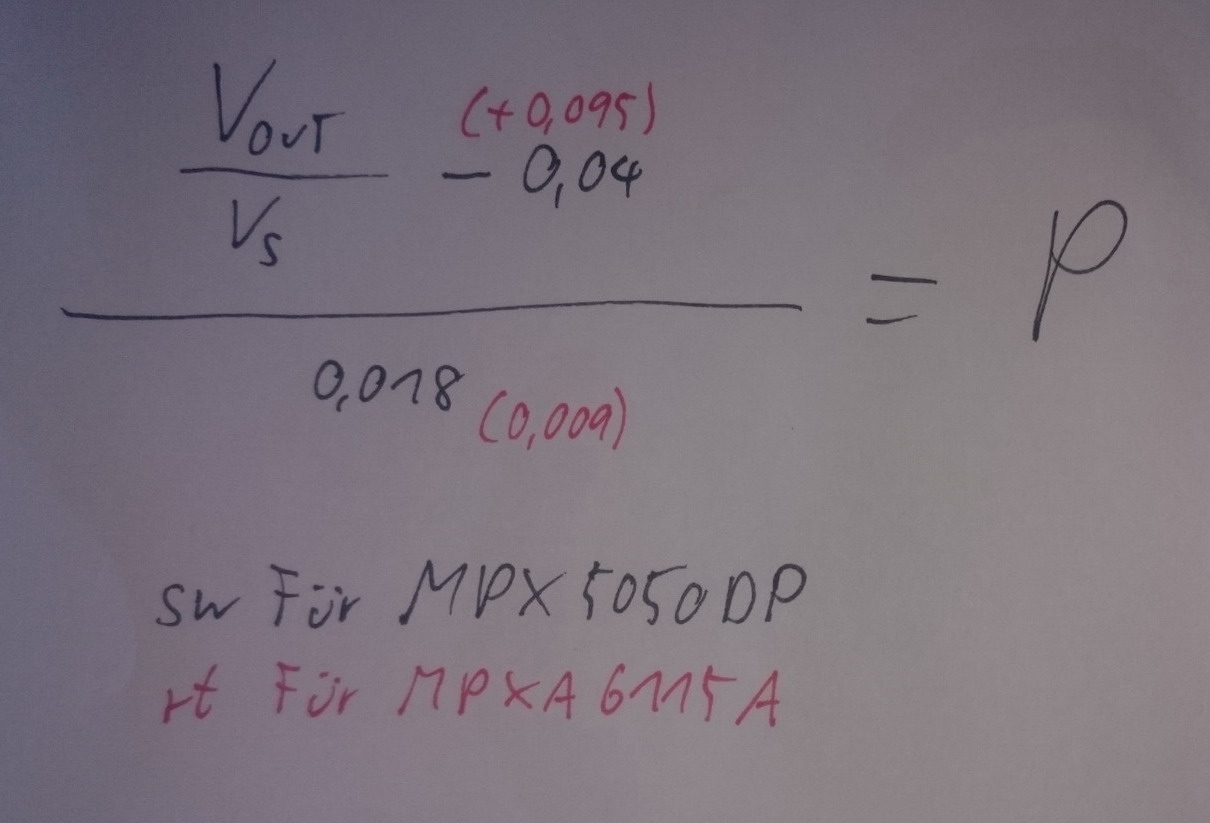 VOUT (+0,095)
— - 0,04
VS
= P
0,018 (0,009)
sw Für MPX5050DP
rt Für MPXA6115A